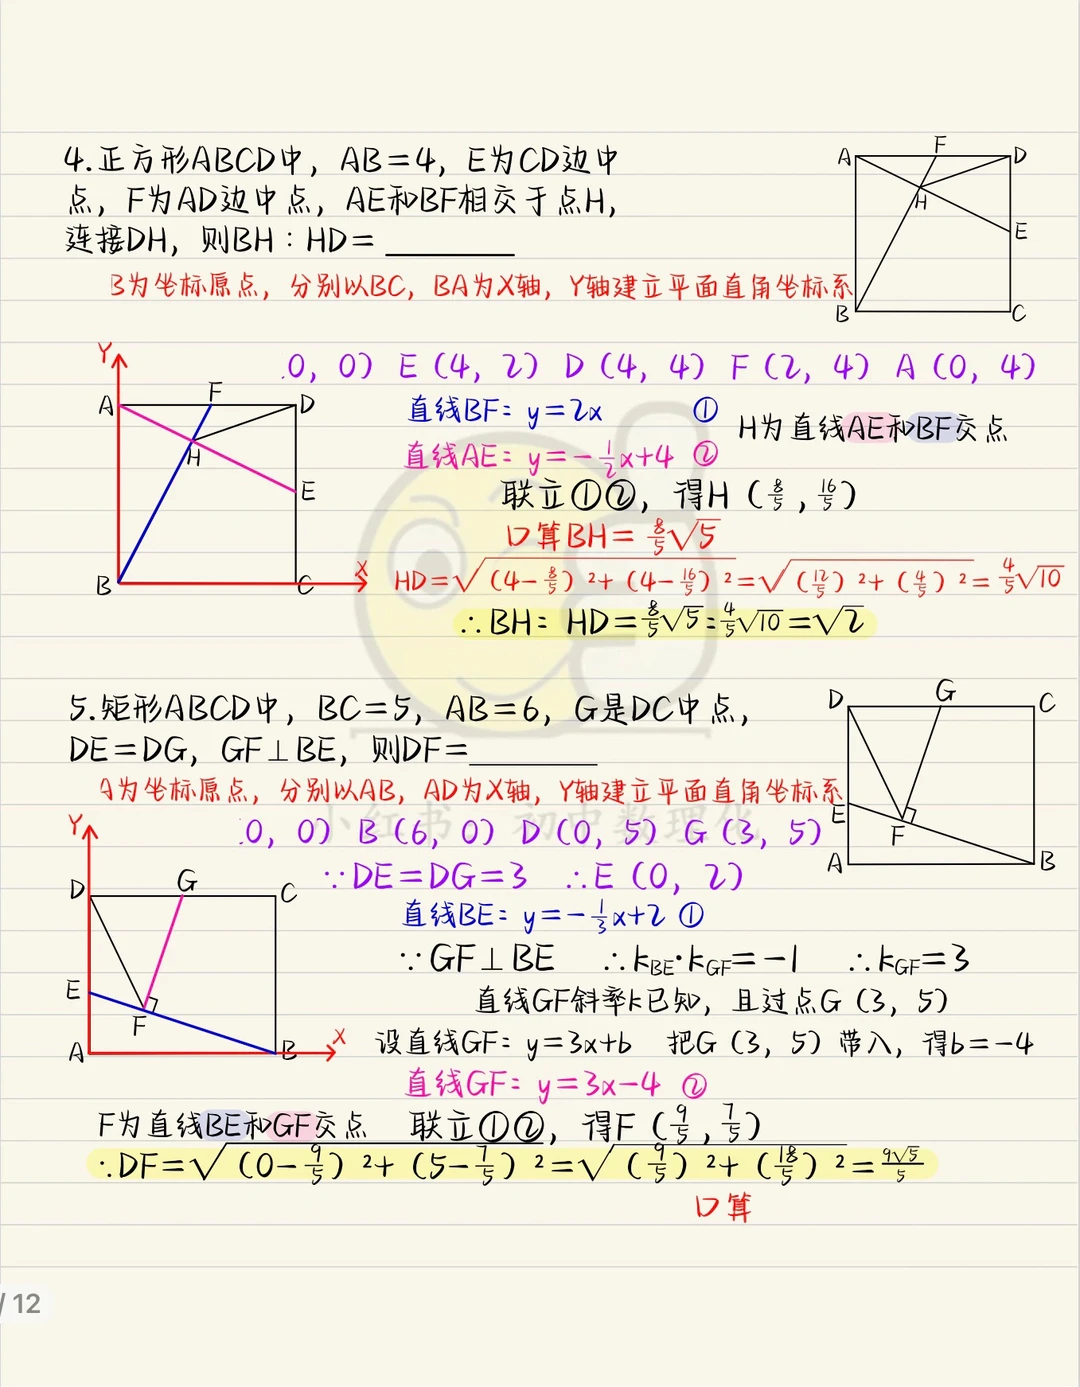 4.正方形ABCD中，AB=4，E为CD边中
点，F为AD边中点，AE和BF相交于点H，
连接DH，则BH：HD=
A F D H E B C
B为坐标原点，分别以BC，BA为X轴，Y轴建立平面直角坐标系
0，0）E（4，2）D（4，4）F（2，4）A（0，4）
直线BF：y=2x ①
H为直线AE和BF交点
直线AE：y=-1/2x+4 ②
联立①②，得H（8/5，16/5）
口算BH=8/5√5
HD=√（4-8/5）²+（4-16/5）²=√（12/5）²+（4/5）²=4/5√10
∴BH：HD=8/5√5：4/5√10=√2
Y A F D H E B C X
5.矩形ABCD中，BC=5，AB=6，G是DC中点，
DE=DG，GF⊥BE，则DF=
D G C E F A B
A为坐标原点，分别以AB，AD为X轴，Y轴建立平面直角坐标系
小红书 初中数理化
0，0）B（6，0）D（0，5）G（3，5）
∵DE=DG=3 ∴E（0，2）
直线BE：y=-1/3x+2 ①
∵GF⊥BE ∴kBE·kGF=-1 ∴kGF=3
直线GF斜率k已知，且过点G（3，5）
设直线GF：y=3x+b 把G（3，5）带入，得b=-4
直线GF：y=3x-4 ②
Y D G C E F A B X
F为直线BE和GF交点 联立①②，得F（9/5，7/5）
∴DF=√（0-9/5）²+（5-7/5）²=√（9/5）²+（18/5）²=9√5/5
口算
/ 12